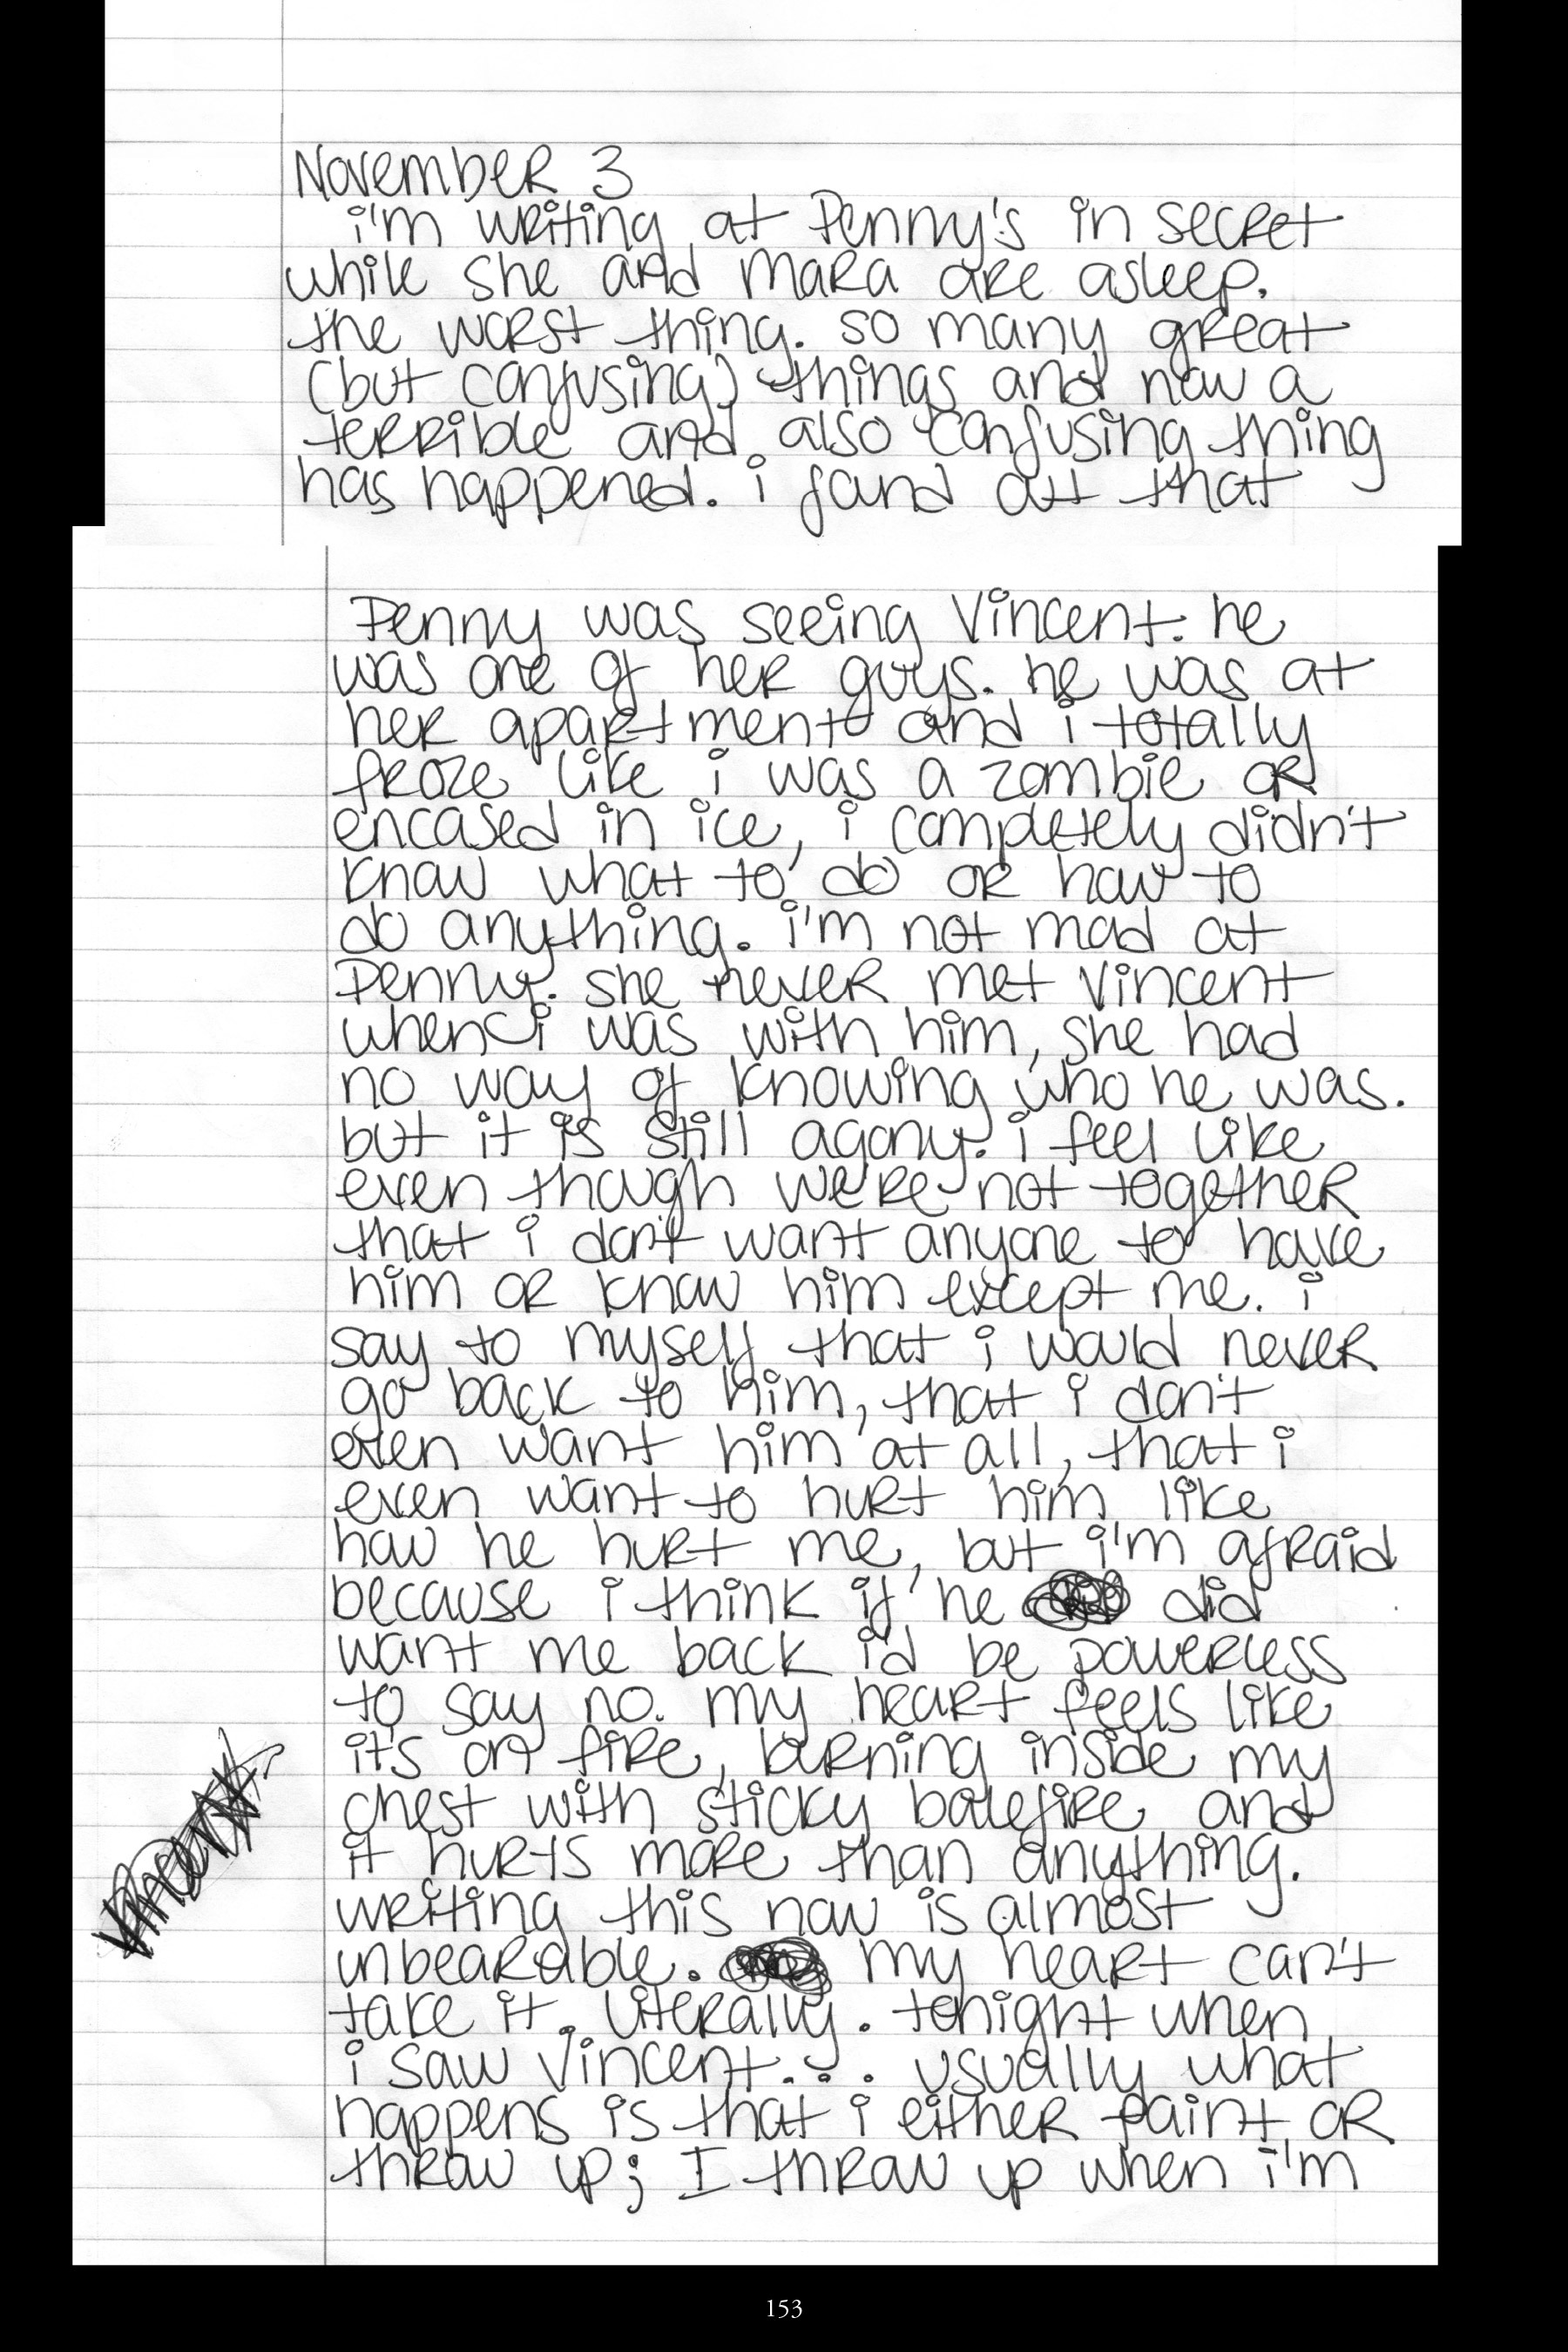 November 3
i'm writing at Penny's in secret
while she and Mara are asleep.
the worst thing. so many great
(but confusing) things and now a
terrible and also confusing thing
has happened. i found out that
Penny was seeing Vincent. he
was one of her guys. he was at
her apartment and i totally
froze like i was a zombie or
encased in ice, i completely didn't
know what to do or how to
do anything. i'm not mad at
Penny. she never met Vincent
when i was with him, she had
no way of knowing who he was.
but it is still agony. i feel like
even though we're not together
that i don't want anyone to have
him or know him except me. i
say to myself that i would never
go back to him, that i don't
even want him at all, that i
even want to hurt him like
how he hurt me, but i'm afraid
because i think if he did
want me back i'd be powerless
to say no. my heart feels like
it's on fire, burning inside my
chest with sticky balefire and
it hurts more than anything.
writing this now is almost
unbearable. my heart can't
take it. literally. tonight when
i saw Vincent... usually what
happens is that i either faint or
throw up; I throw up when i'm
Vincent
153